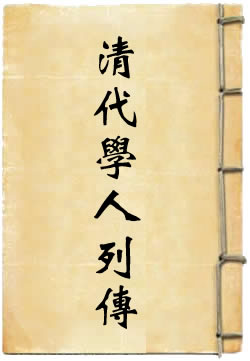 清代學人列傳